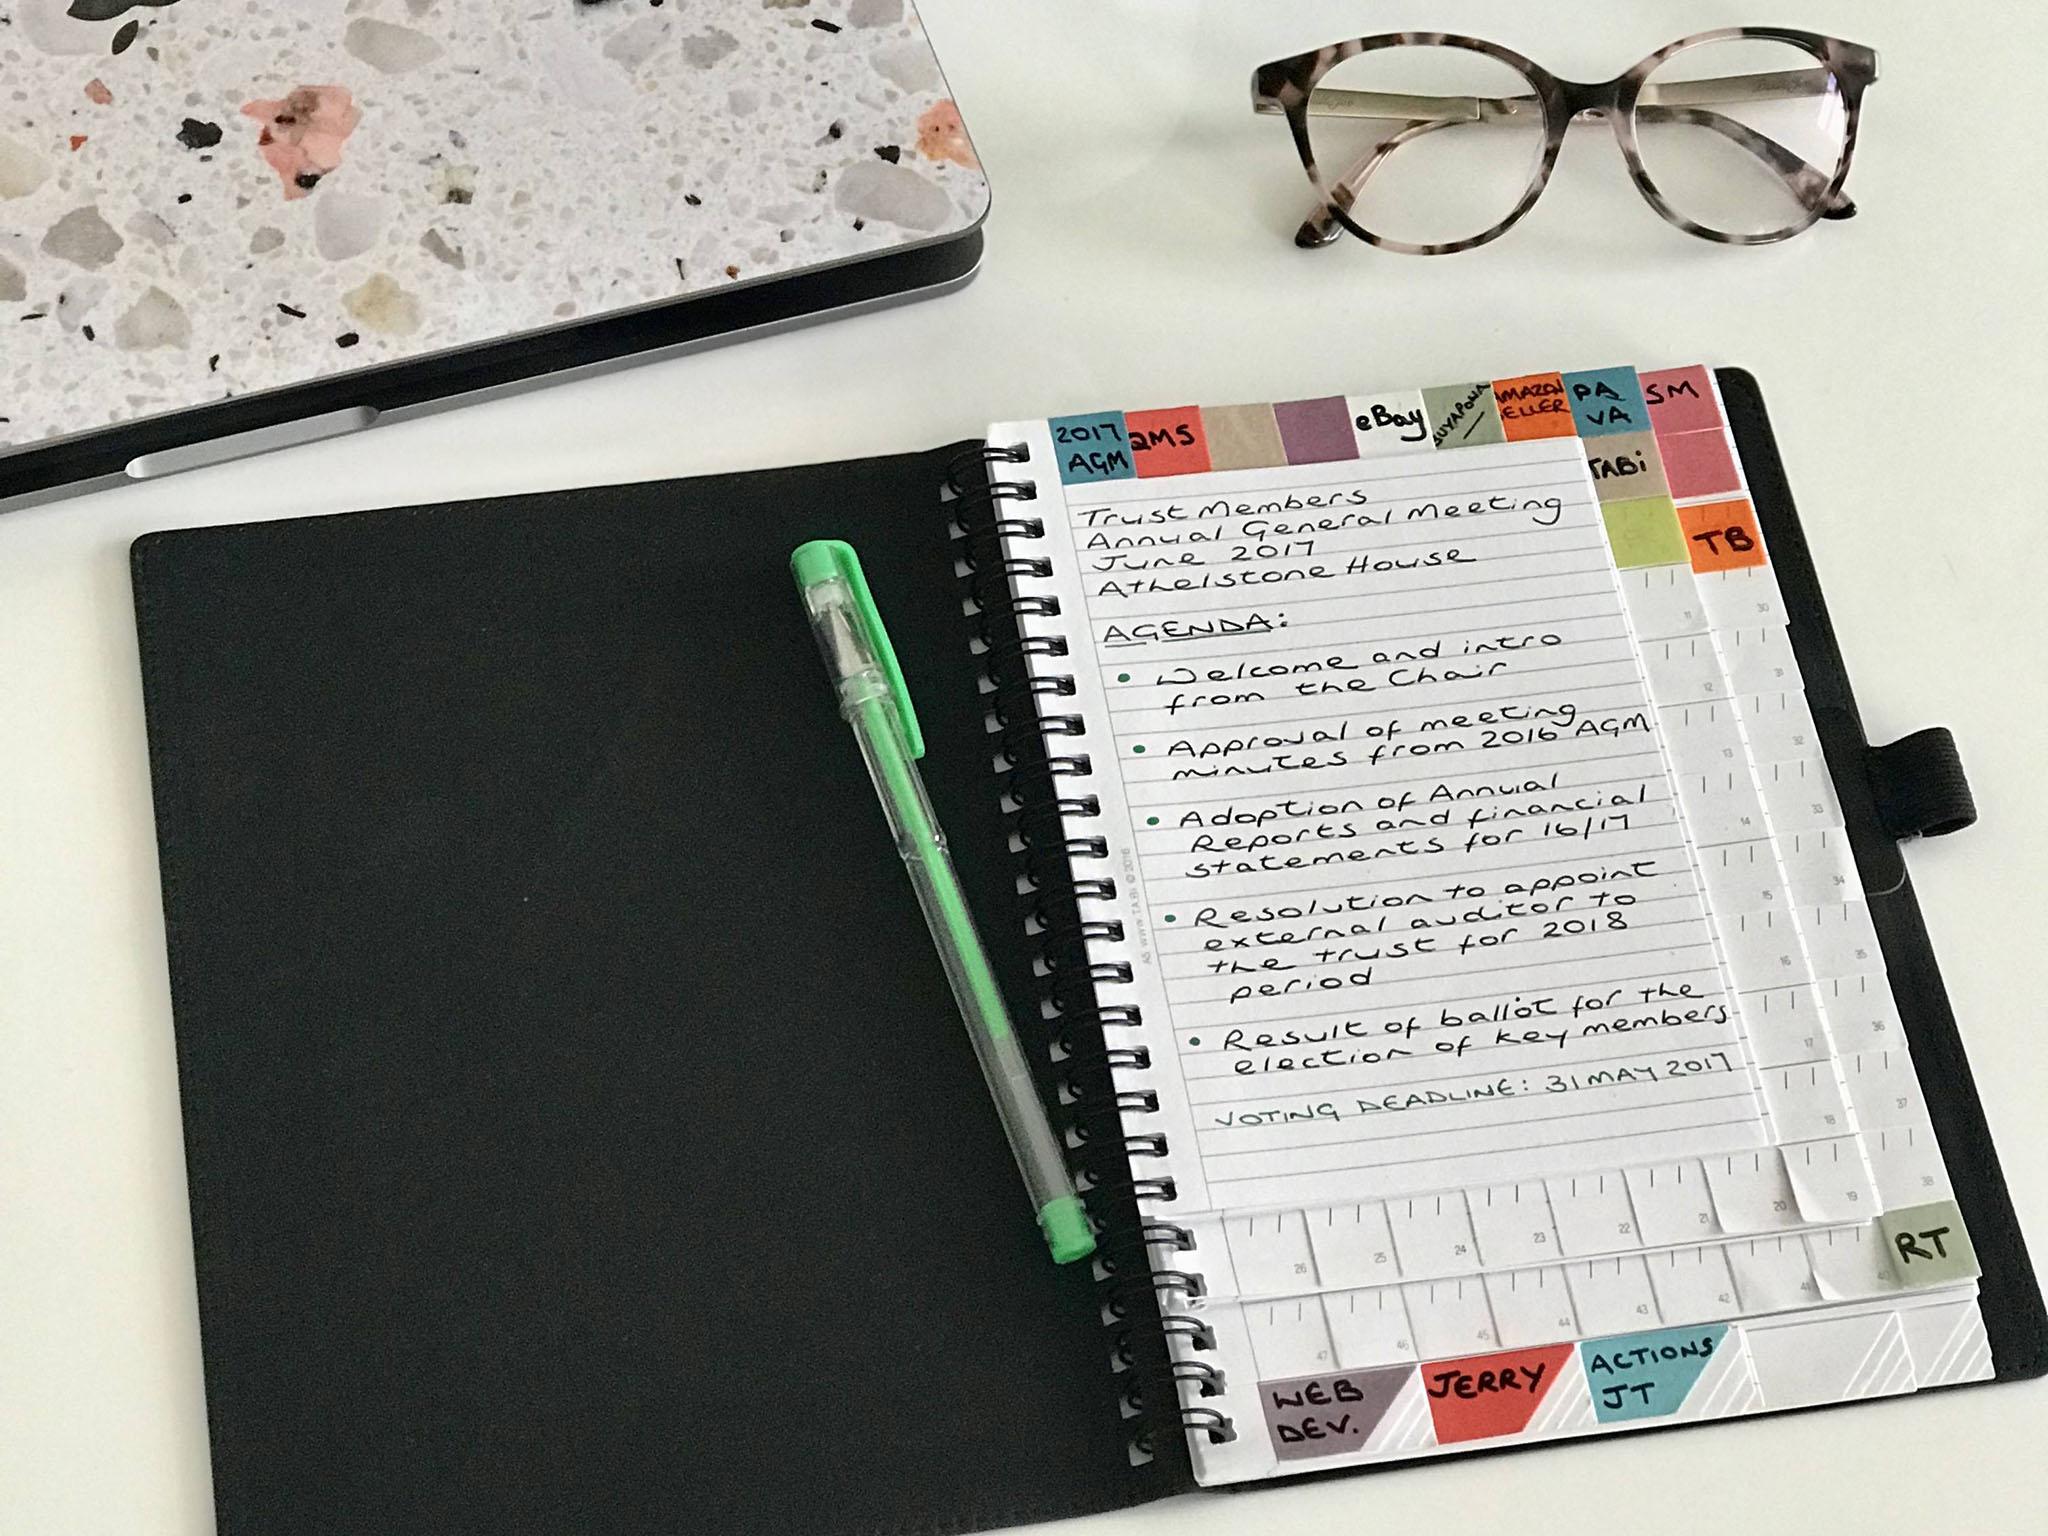 2017
AGM
QMS
eBay
AMAZON
SELLER
PA
VA
SM
TABi
TB
Trust Members
Annual General Meeting
June 2017
Athelstone House
AGENDA:
• Welcome and intro
from the Chair
• Approval of meeting
minutes from 2016 AGM
• Adoption of Annual
Reports and financial
statements for 16/17
• Resolution to appoint
external auditor to
the trust for 2018
period
• Result of ballot for the
election of key members
VOTING DEADLINE: 31 MAY 2017
11
30
12
31
13
32
14
33
15
34
16
35
17
36
18
37
19
38
26
25
24
23
22
21
20
47
46
45
44
43
42
41
40
RT
WEB
DEV.
JERRY
ACTIONS
JT